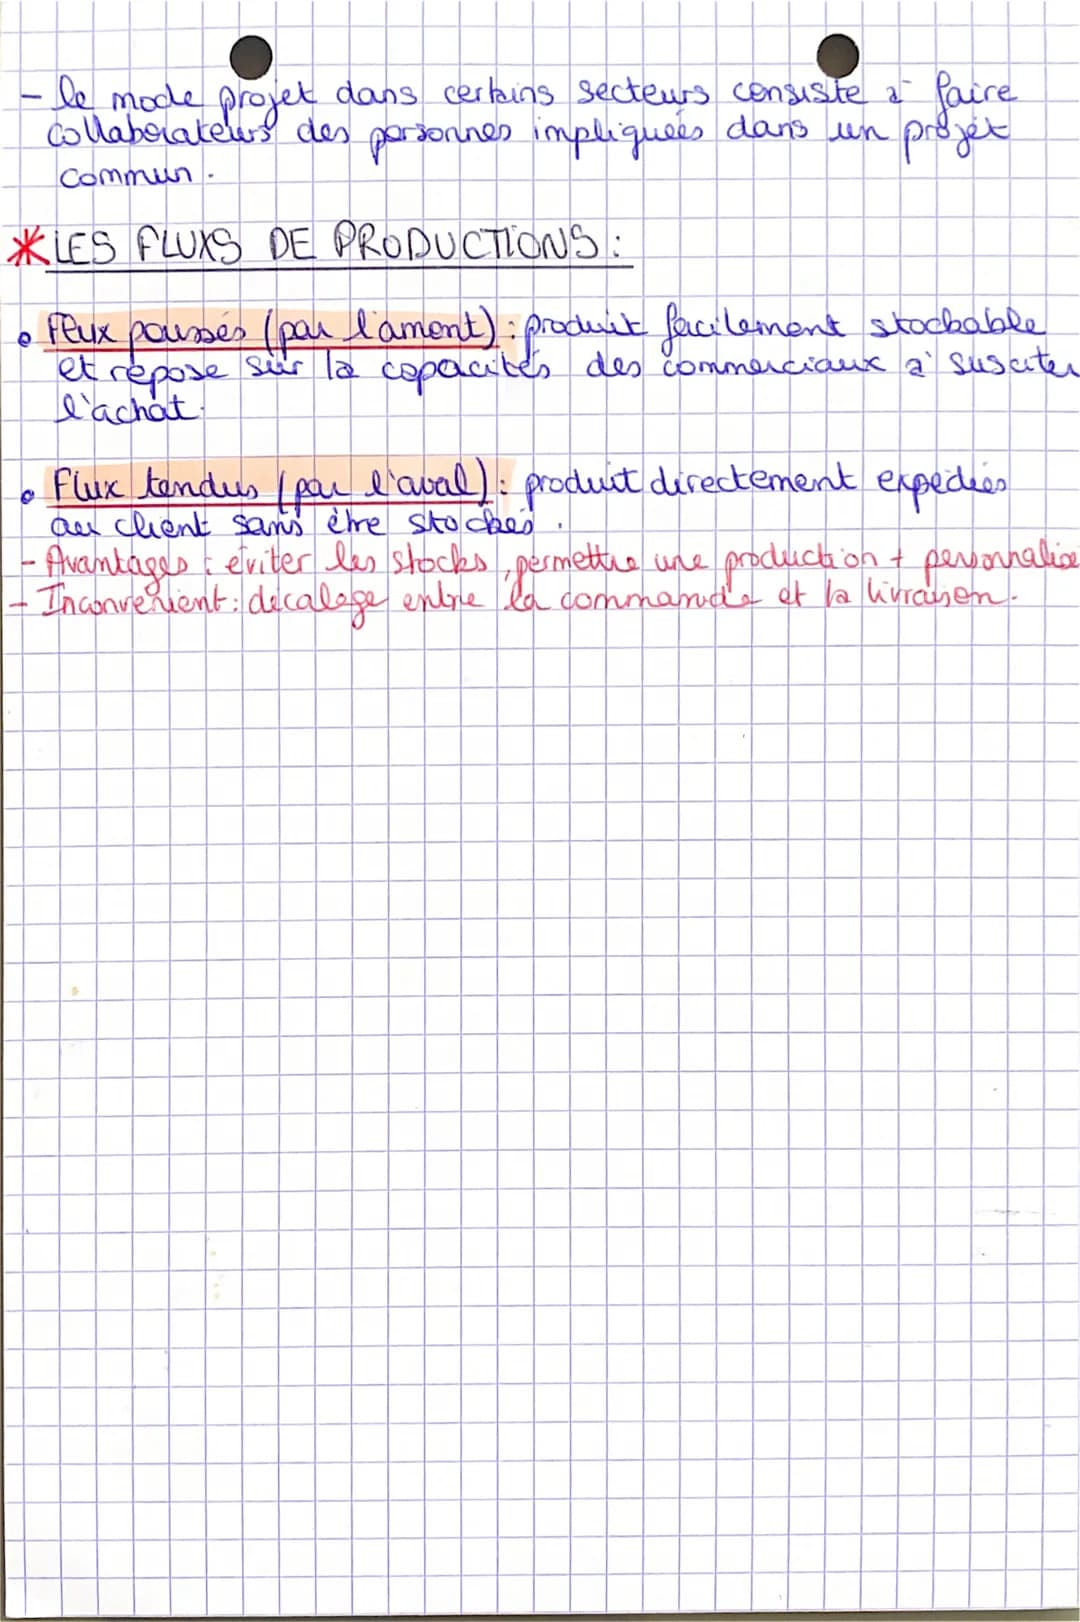 - le mode projet dans certains secteurs consiste à faire
collaborateurs des personnes impliquées dans un projet
commun.
*LES FLUXS DE PRODUCTIONS :
• Flux poussés (par l'amont) : produit facilement stockable
et repose sur la capacités des commerciaux à susciter
l'achat.
• Flux tendus (par l'aval) : produit directement expédiés
au client sans être stockés.
- Avantages : éviter les stocks, permettre une production + personnalisé
- Inconvénient : décalage entre la commande et la livraison.